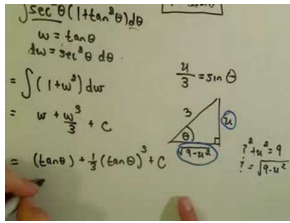 ∫sec θ (1+tan²θ)dθ
w = tanθ
dw = sec²θ dθ
= ∫ (1+w²) dw
= w + w³/3 + C
= (tanθ) + 1/3 (tanθ)³ + C
u/3 = sin θ
3
u
θ
√9-u²
?² + u² = 9
? = √9-u²